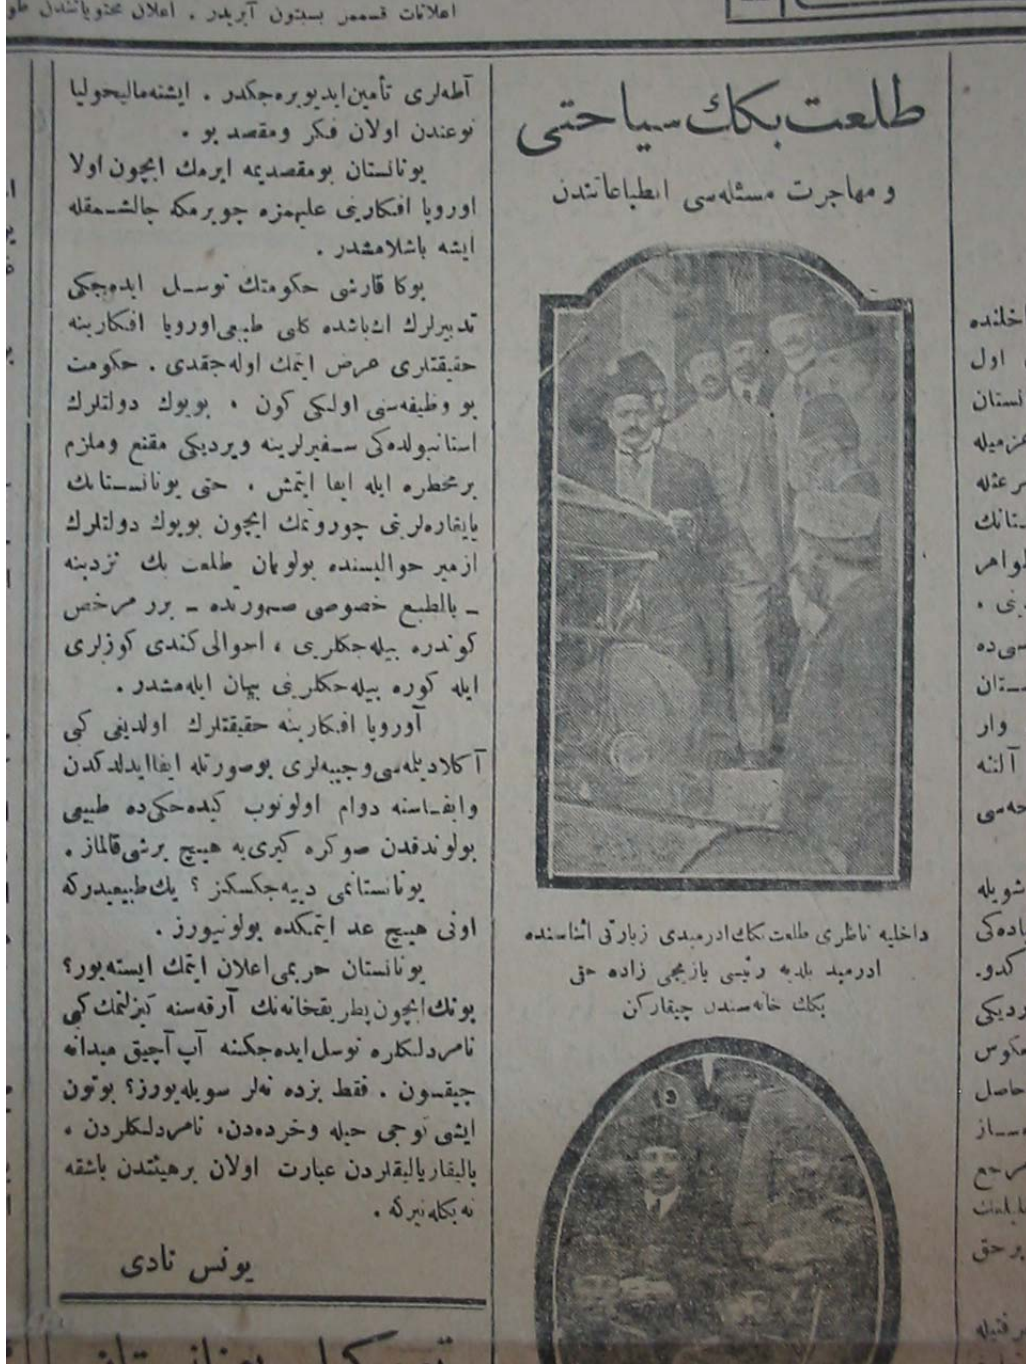 اعلانات قسمز بسبتون آیریدر . اعلان محتویاتندن
طلعت بكك سیاحتی
و مهاجرت مسئله‌سی انطباعاتندن
داخلیه ناظری طلعت بكك ادرمیدی زیارتی اثناسنده
ادرمید بلدیه رئیسی یازیجی زاده حقی
بكك خانه‌سندن چیقاركن
آطه‌لری تأمین ایدیویره‌جكدر . ایشته مالیحولیا
نوعندن اولان فكر ومقصد بو .
یونانستان بومقصدینه ایرمك ایچون اولا
اوروپا افكارینی علیهمزه چویرمكه چالشـمقله
ایشه باشلامشدر .
بوكا قارشی حكومتك توسـل ایده‌جكی
تدبیرلرك اك‌باشده كلنی طبیعی اوروپا افكارینه
حقیقتلری عرض ایتمك اوله‌جقدی . حكومت
بو وظیفه‌سنی اولكی كون ، بویوك دولتلرك
استانبولده‌كی سـفیرلرینه ویردیكی مقنع وملزم
برمخطره ایله ایفا ایتمش ، حتی یونانسـتانك
یایغاره‌لرینی چوروتمك ایچون بویوك دولتلرك
ازمیر حوالیسنده بولونان طلعت بك نزدینه
ـ بالطبع خصوصی صـورتده ـ برر مرخص
كوندره بیله‌جكلرینی ، احوالی كندی كوزلری
ایله كوره بیله‌جكلرینی بیان ایله‌مشدر .
آوروپا افـكارینه حقیقتلرك اولدیغی كبی
آكلادیلمه‌سی وجیبه‌لری بوصورتله ایفا ایدلدكدن
وایفـاسنه دوام اولونوب كیده‌جكی‌ده طبیعی
بولوندقدن صوكره كیری‌یه هیـچ برشی قالماز .
یونانستانمی دییه‌جكسكز ؟ پك طبیعیدركه
اونی هیـچ عد ایتمكده بولونیورز .
یونانستان حربمی اعلان ایتمك ایسته‌یور؟
بونك ایچون پطریقخانه‌نك آرقه‌سنه كیزلنمك كبی
نامردلكلره توسل ایده‌جكینه آپ آچیق میدانه
چیقـسون . فقط بزده نه‌لر سویله‌یورز؟ بوتون
ایشی كوجی حیله وخرده‌دن، نامردلـكلردن ،
عبارت اولان برهیئتدن باشقه
نه بكله‌نیركه .
یونس نادی
اخلنده
اول
نستان
عزمیله
ستانك
ـتان
وار
آلتنه
شویله
یردیكی
حاصل
مرجع
برحق